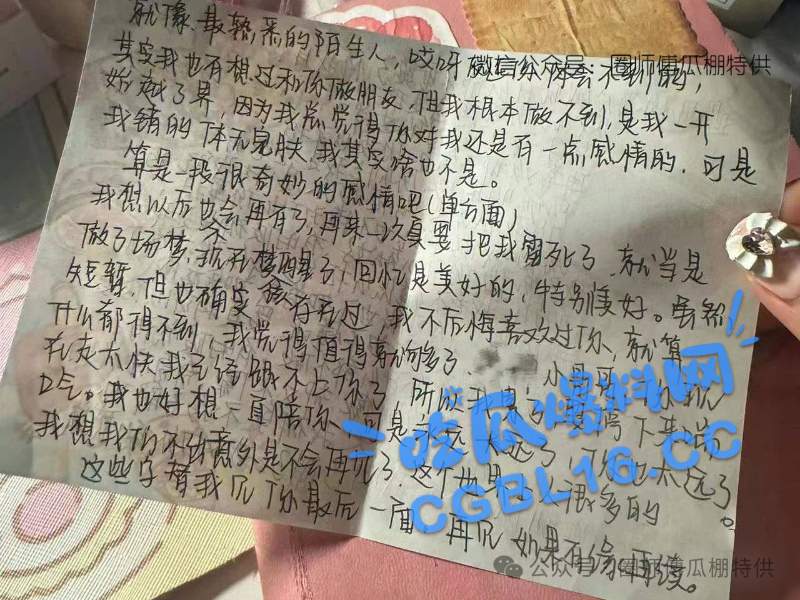 就像最熟悉的陌生人，哎呀
微信公众号：圈师傅瓜棚特供
其实我也有想过和你做朋友，但我根本做不到，是我一开
始越了界，因为我总觉得你对我还是有一点感情的，可是
我错的体无完肤，我其实啥也不是。
算是一段很奇妙的感情吧(单方面)
我想以后也不会再有了，再来一次真要把我雷死了，就当是
做了场梦，现在梦醒了，回忆是美好的，特别美好。虽然
短暂，但也确实存在过，我不后悔喜欢过你，就算
什么都得不到，我觉得值得就够了，小
走太快我已经跟不上你了，所以我
吃瓜爆料网
CGBL16.CC
我也好想一直陪你，可是
我想我们不出意外是不会再见了，这个世界 很多的
这些字替我见你最后一面，再见，如果有缘再续。
公众号 圈师傅瓜棚特供